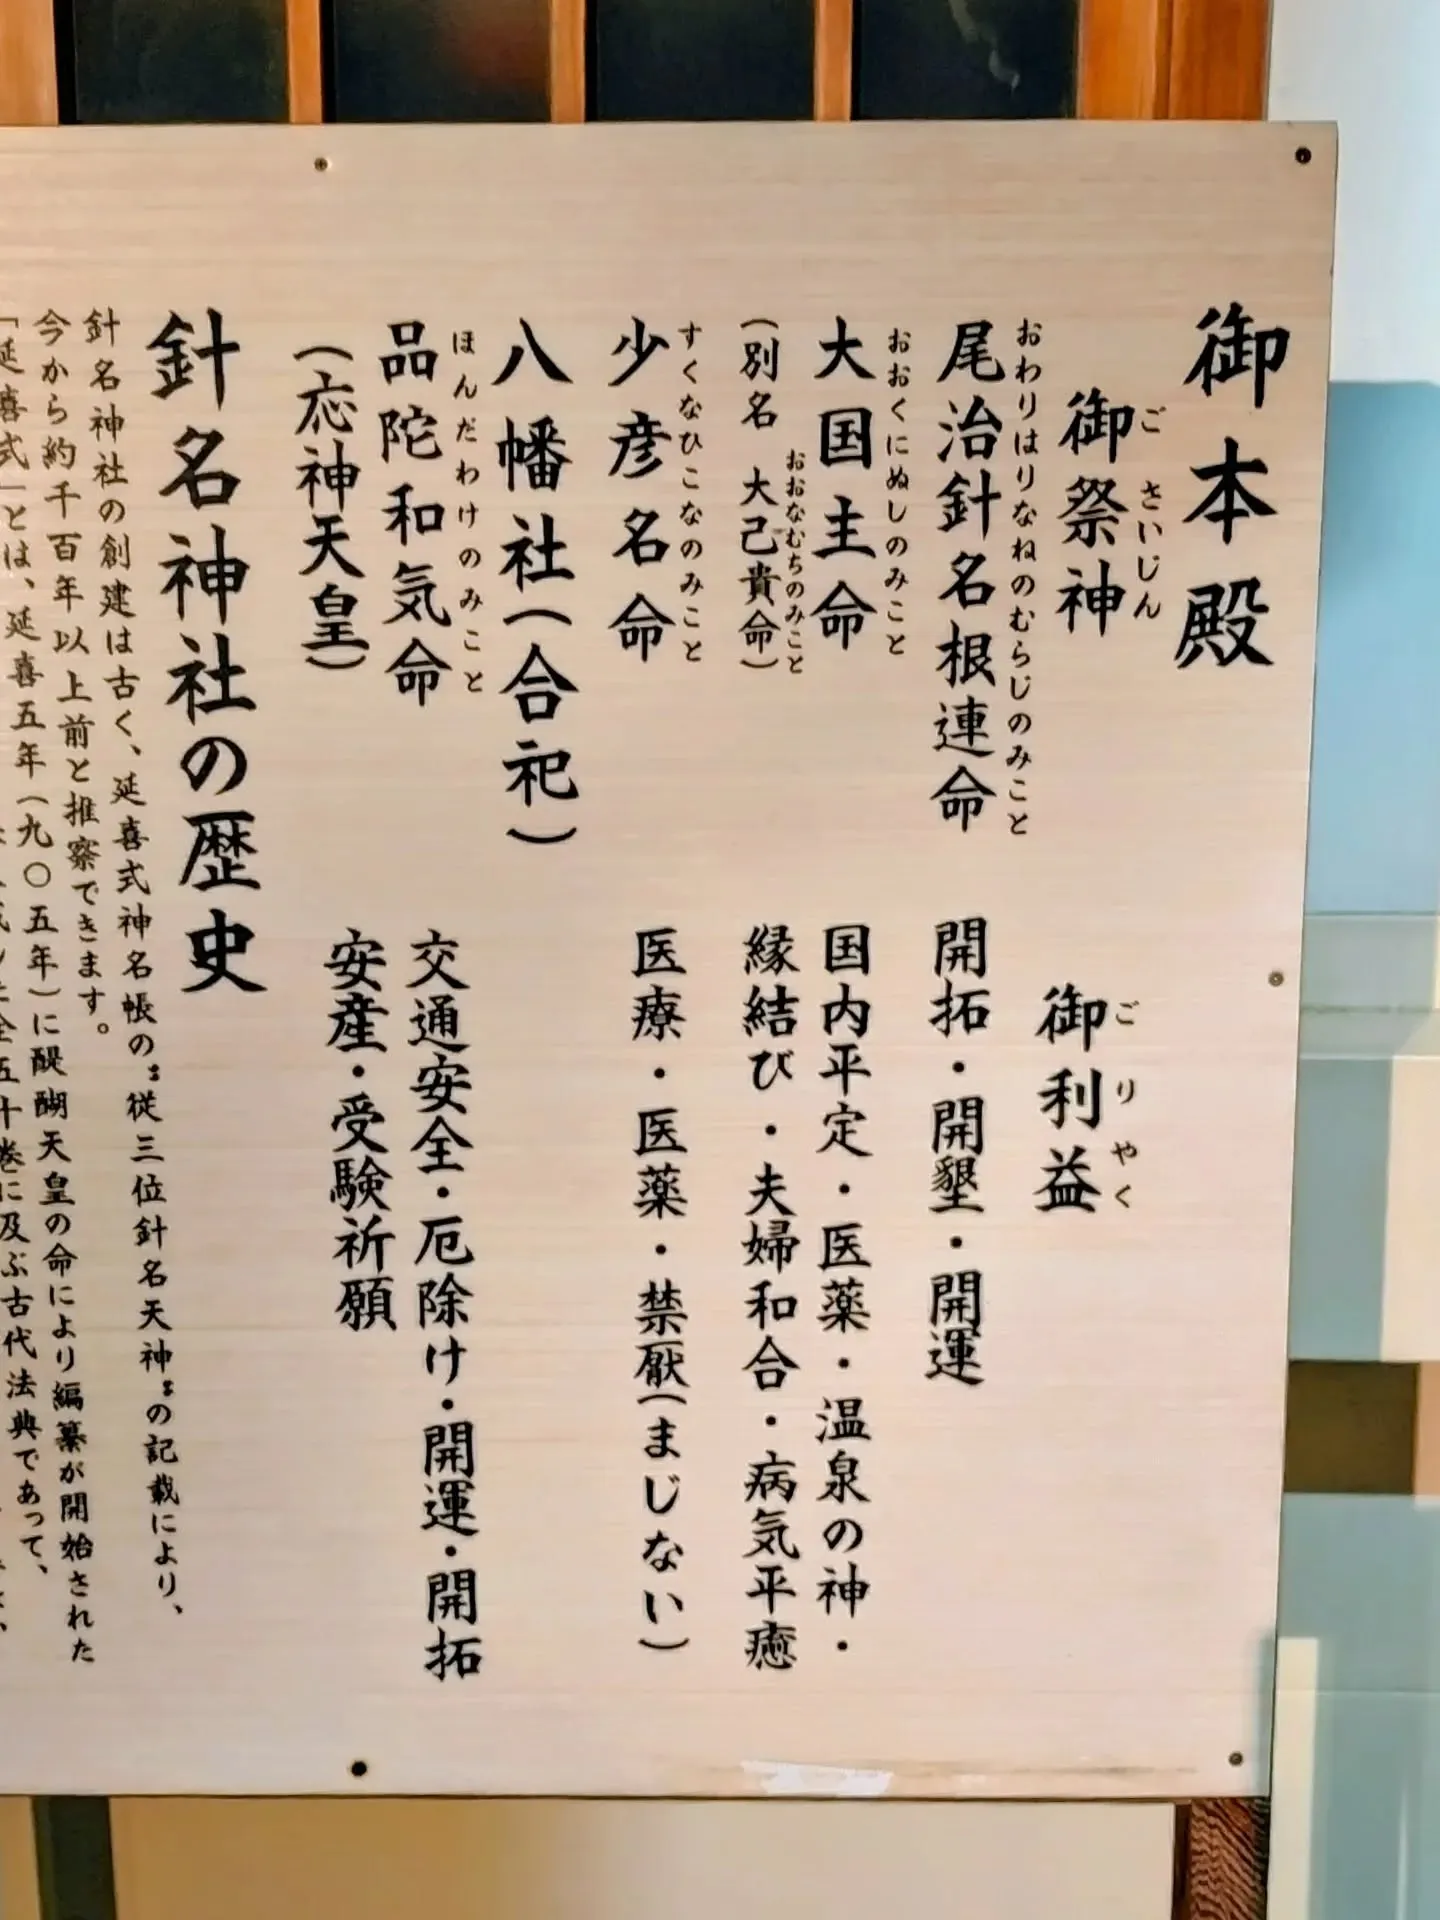 御本殿
御祭神
ごさいじん
御利益
ごりやく
尾治針名根連命
おわりはりなねのむらじのみこと
開拓・開墾・開運
大国主命
おおくにぬしのみこと
国内平定・医薬・温泉の神・
(別名 大己貴命)
おおなむちのみこと
縁結び・夫婦和合・病気平癒
少彦名命
すくなひこなのみこと
医療・医薬・禁厭(まじない)
八幡社(合祀)
品陀和気命
ほんだわけのみこと
交通安全・厄除け・開運・開拓
(応神天皇)
安産・受験祈願
針名神社の歴史
針名神社の創建は古く、延喜式神名帳の〝従三位針名天神〟の記載により、
今から約千百年以上前と推察できます。
「延喜式」とは、延喜五年(九〇五年)に醍醐天皇の命により編纂が開始された
全五十巻に及ぶ古代法典であって、